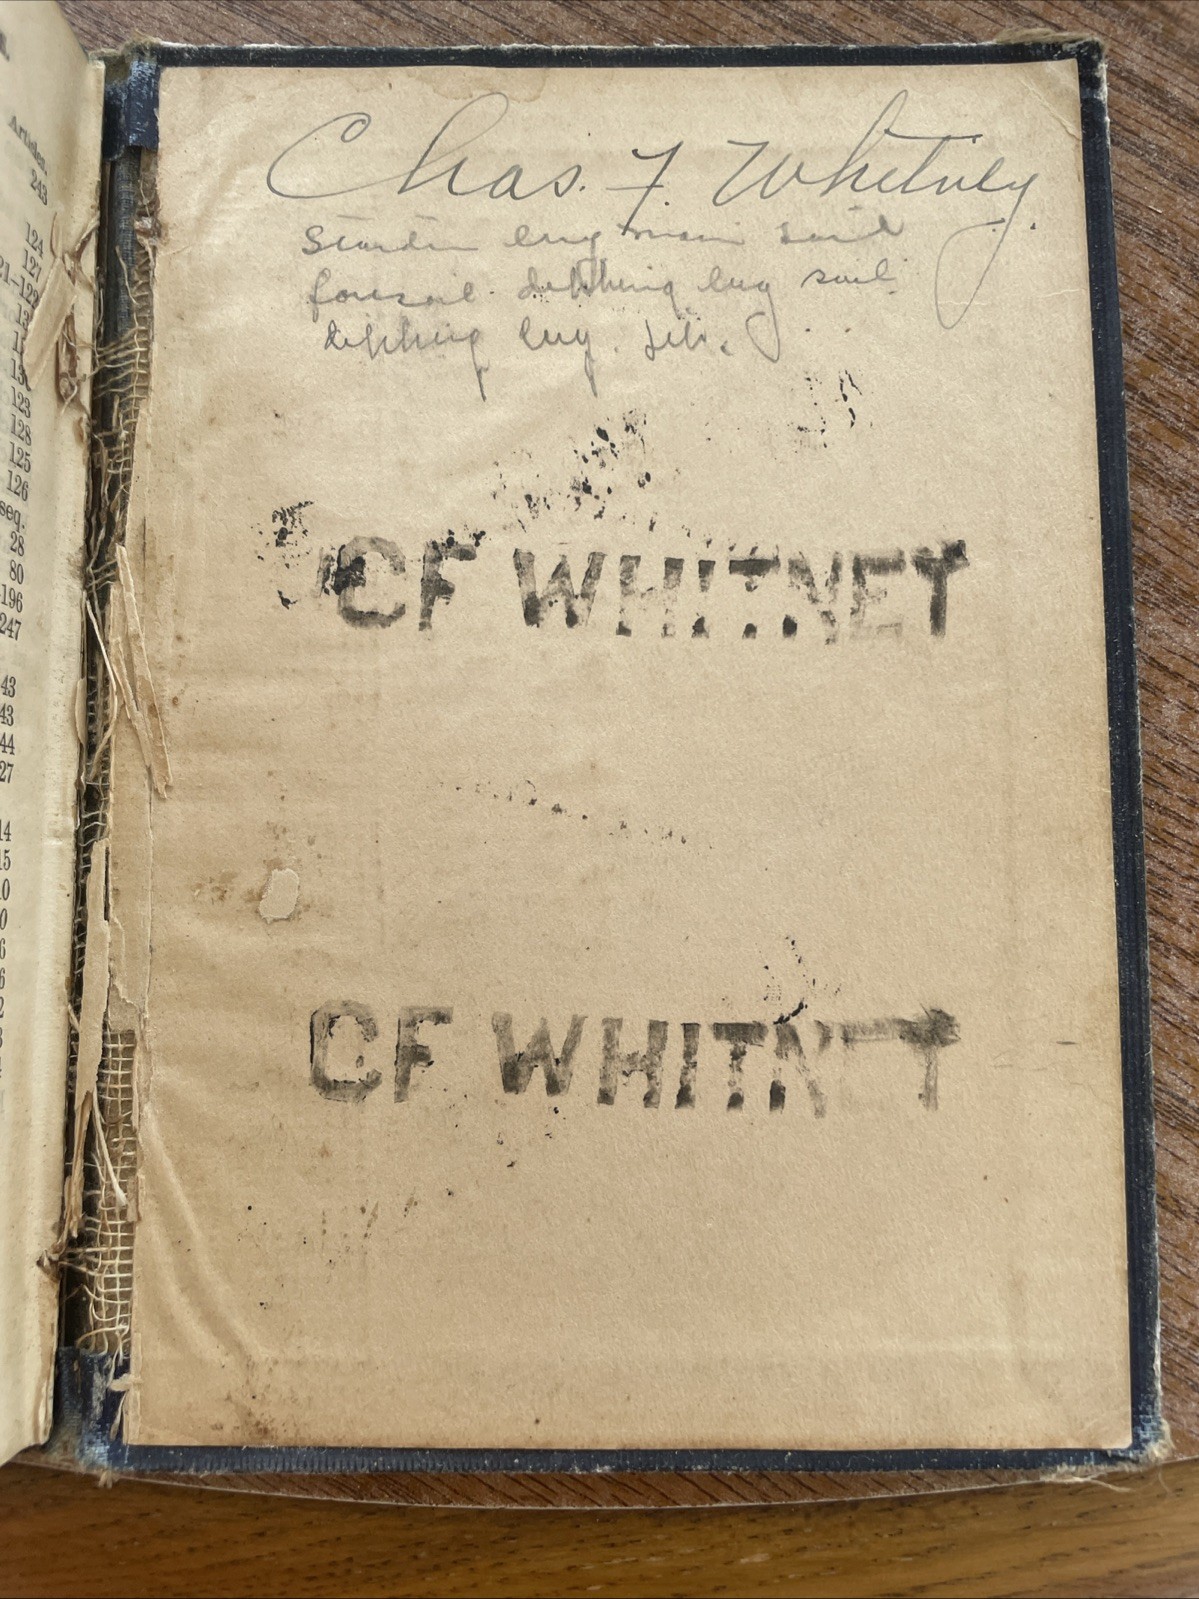 Articles.
243
124
127
21-122
123
128
125
126
seq.
28
80
196
247
43
43
44
27
14
15
Chas. F. Whitney.
lug main sail
foresail dipping lug sail
dipping lug. jib.
CF WHITNEY
CF WHITNEY